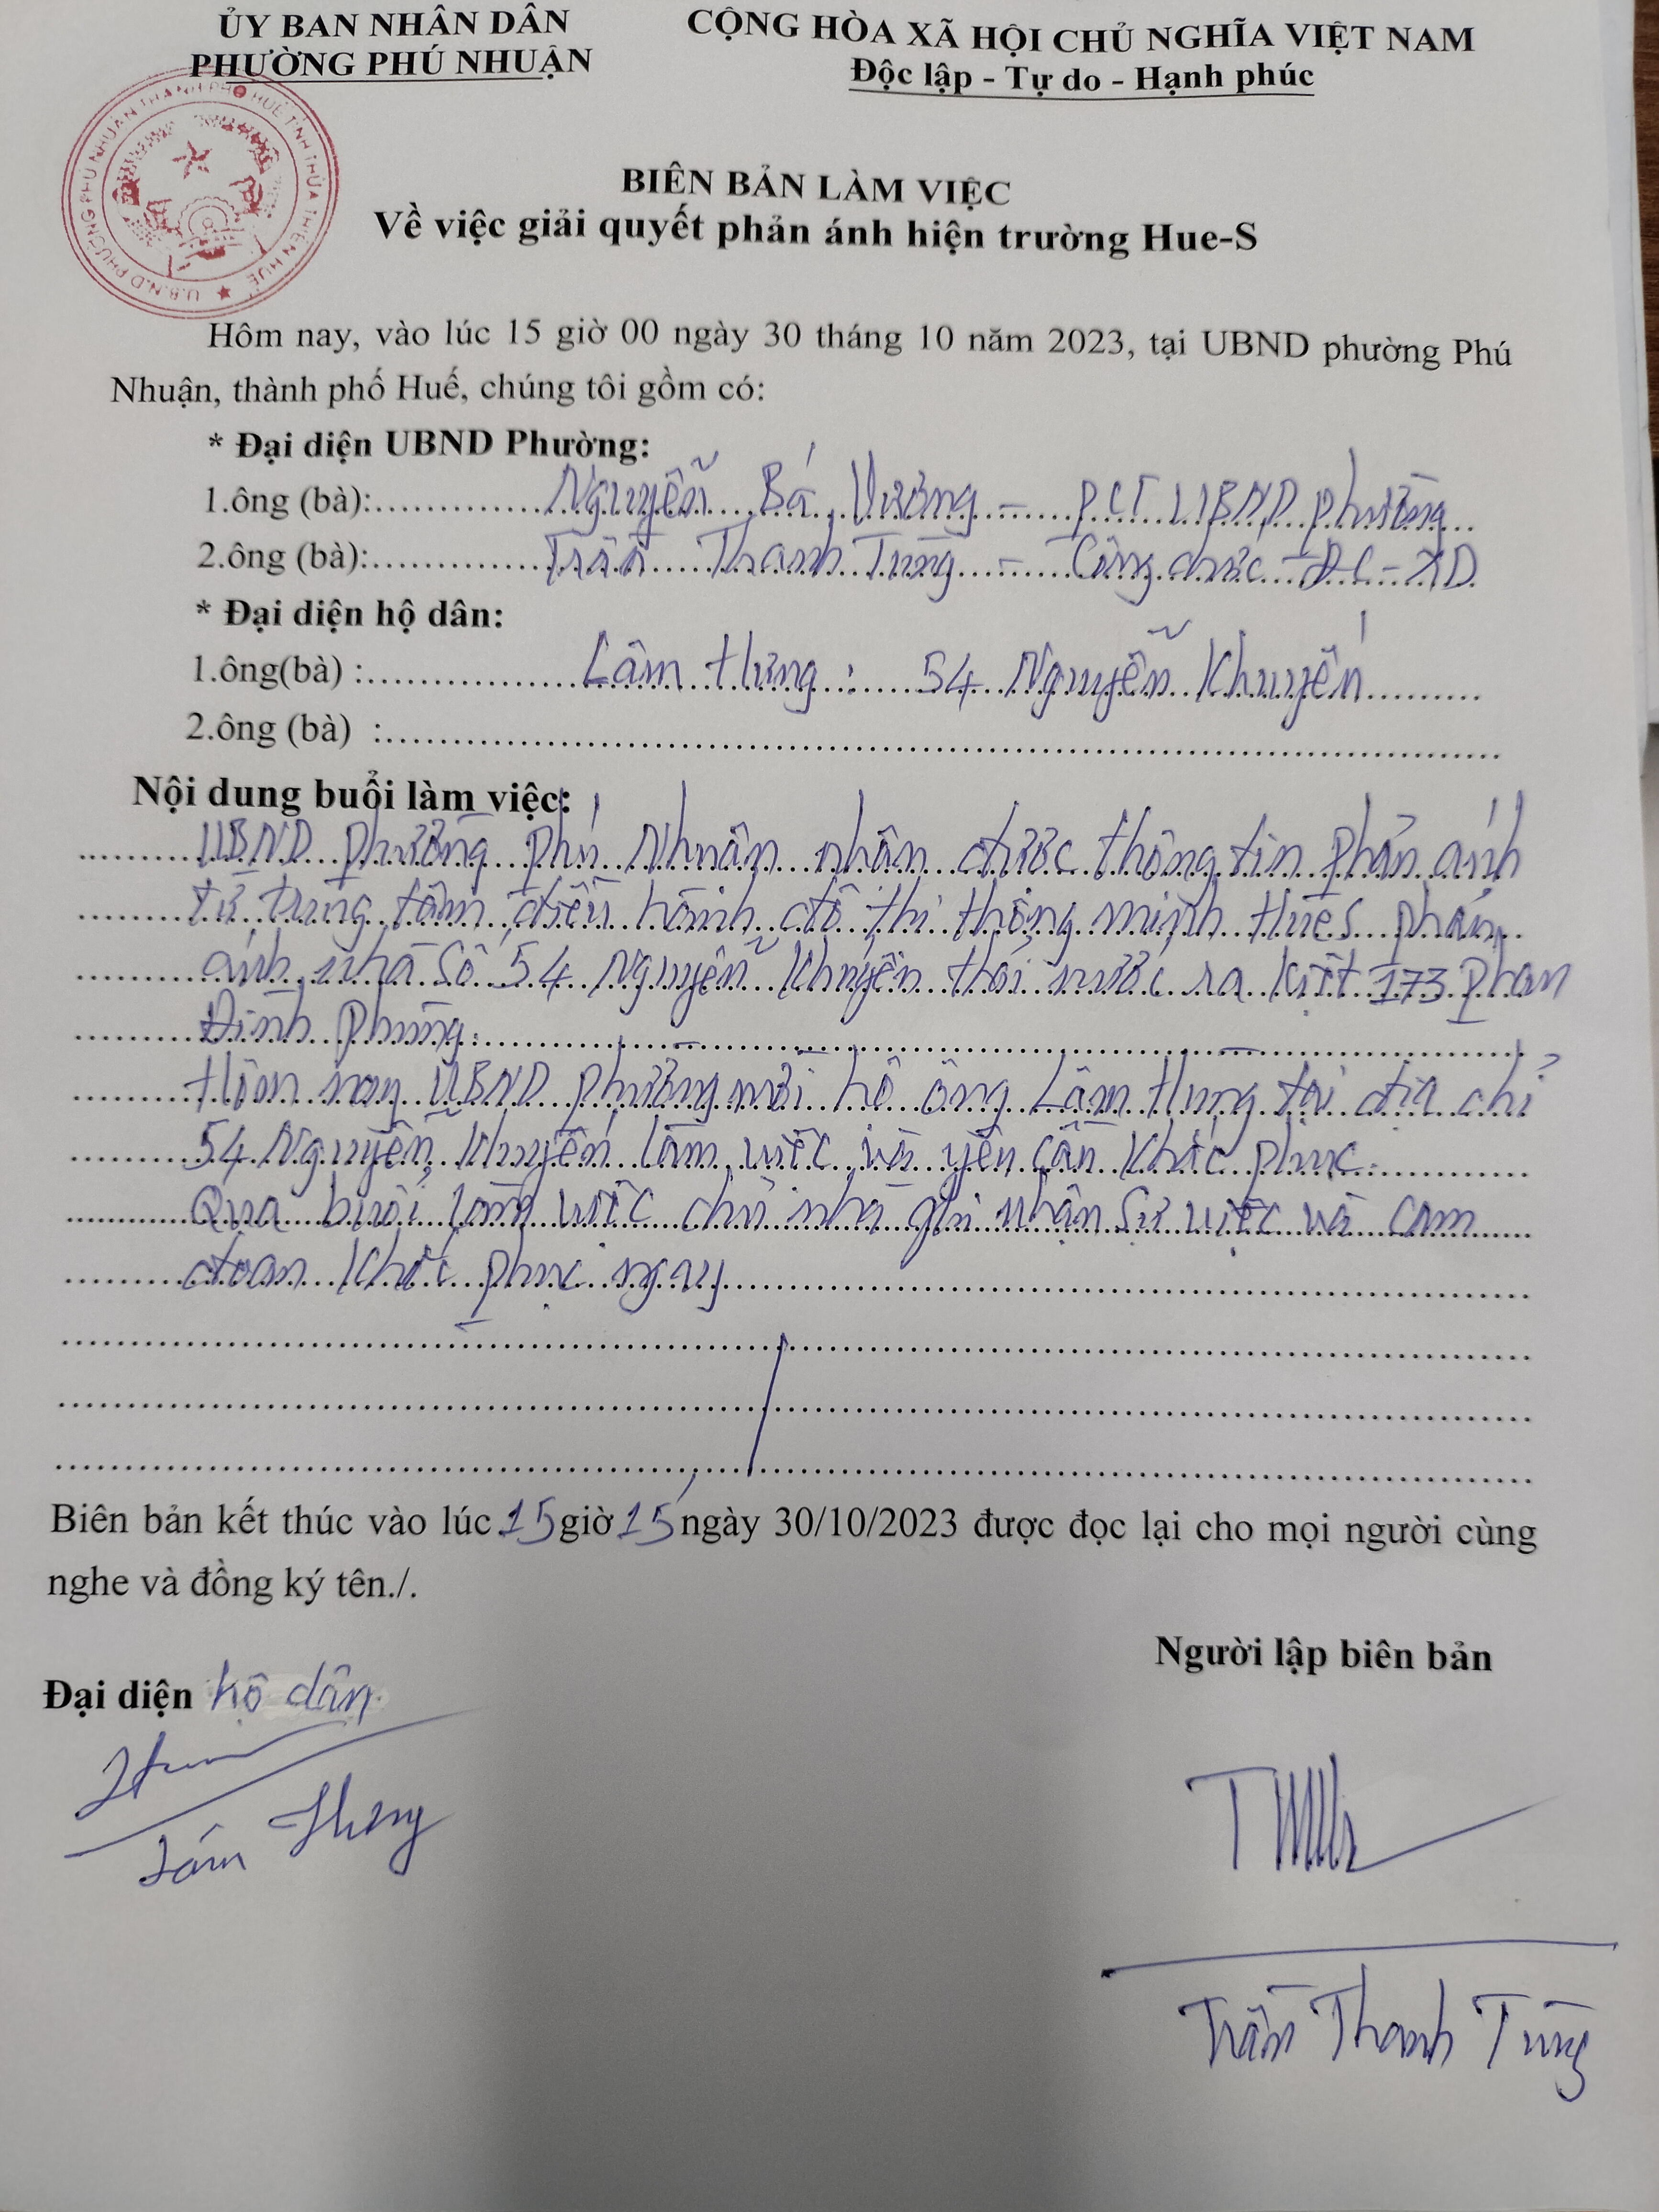 ỦY BAN NHÂN DÂN
PHƯỜNG PHÚ NHUẬN
CỘNG HÒA XÃ HỘI CHỦ NGHĨA VIỆT NAM
Độc lập - Tự do - Hạnh phúc
U.B.N.D PHƯỜNG PHÚ NHUẬN THÀNH PHỐ HUẾ TỈNH THỪA THIÊN HUẾ
BIÊN BẢN LÀM VIỆC
Về việc giải quyết phản ánh hiện trường Hue-S
Hôm nay, vào lúc 15 giờ 00 ngày 30 tháng 10 năm 2023, tại UBND phường Phú
Nhuận, thành phố Huế, chúng tôi gồm có:
* Đại diện UBND Phường:
1.ông (bà):..............Nguyễn Bá Vương - PCT UBND phường
2.ông (bà):..............Trần Thanh Tùng - Công chức - ĐC - XD
* Đại diện hộ dân:
1.ông(bà) :................Lâm Hưng : 54 Nguyễn Khuyến
2.ông (bà) :................
Nội dung buổi làm việc:
UBND phường Phú Nhuận nhận được thông tin phản ánh
từ trung tâm điều hành đô thị thông minh HueS phản
ánh nhà số 54 Nguyễn Khuyến thải nước ra kiệt 173 Phan
Đình Phùng.
Hôm nay UBND phường mời hộ ông Lâm Hưng tại địa chỉ
54 Nguyễn Khuyến làm việc và yêu cầu khắc phục.
Qua buổi làm việc chủ nhà ghi nhận sự việc và cam
đoan khắc phục ngay
Biên bản kết thúc vào lúc 15 giờ 15 ngày 30/10/2023 được đọc lại cho mọi người cùng
nghe và đồng ký tên./.
Đại diện hộ dân
Người lập biên bản
Lâm Hưng
Trần Thanh Tùng